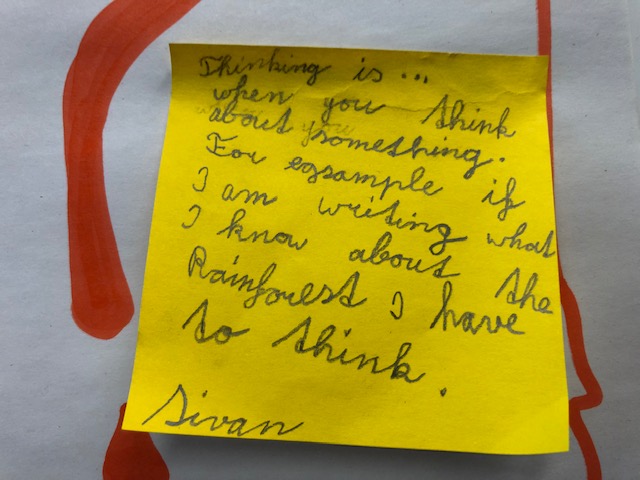 Thinking is...
when you think
about something.
For egsample if
I am writing what
I know about the
Rainforest I have
to think.
Sivan